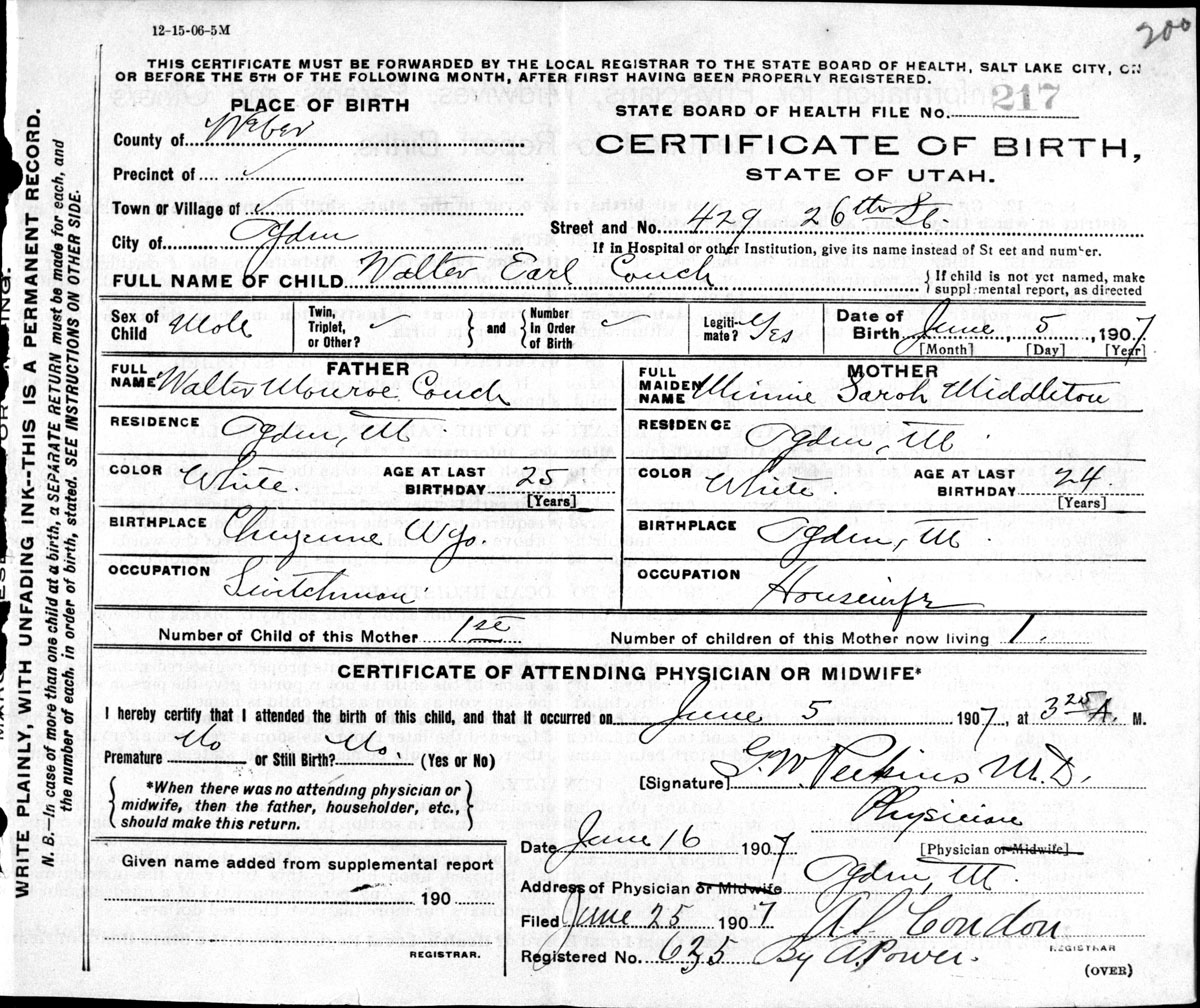 12-15-06-5M
200
THIS CERTIFICATE MUST BE FORWARDED BY THE LOCAL REGISTRAR TO THE STATE BOARD OF HEALTH, SALT LAKE CITY, ON
OR BEFORE THE 5TH OF THE FOLLOWING MONTH, AFTER FIRST HAVING BEEN PROPERLY REGISTERED.
PLACE OF BIRTH
STATE BOARD OF HEALTH FILE No. 217
County of Weber
CERTIFICATE OF BIRTH,
Precinct of ✓
STATE OF UTAH.
Town or Village of ✓
Street and No. 429 26th St.
City of Ogden
If in Hospital or other Institution, give its name instead of St eet and number.
FULL NAME OF CHILD Walter Earl Couch
If child is not yet named, make
suppl mental report, as directed
Sex of Child Male
Twin, Triplet, or Other? ✓
and
Number in Order of Birth
Legiti-mate? Yes
Date of Birth June 5, 1907
[Month] [Day] [Year]
FATHER
FULL NAME Walter Monroe Couch
RESIDENCE Ogden, Ut.
COLOR White
AGE AT LAST BIRTHDAY 25
[Years]
BIRTHPLACE Cheyenne Wyo.
OCCUPATION Switchman
MOTHER
FULL MAIDEN NAME Minnie Sarah Middleton
RESIDENCE Ogden, Ut.
COLOR White.
AGE AT LAST BIRTHDAY 24
[Years]
BIRTHPLACE Ogden, Ut.
OCCUPATION Housewife
Number of Child of this Mother 1st
Number of children of this Mother now living 1.
CERTIFICATE OF ATTENDING PHYSICIAN OR MIDWIFE*
I hereby certify that I attended the birth of this child, and that it occurred on June 5 1907, at 3 25 A. M.
Premature No or Still Birth? No. (Yes or No)
[Signature] G. W. Perkins M.D.
*When there was no attending physician or
midwife, then the father, householder, etc.,
should make this return.
Physician
[Physician or Midwife]
Date June 16 1907
Given name added from supplemental report
190
REGISTRAR.
Address of Physician or Midwife Ogden, Ut.
Filed June 25 1907
Condon
REGISTRAR
Registered No. 635
By A. Power.
(OVER)
WRITE PLAINLY, WITH UNFADING INK--THIS IS A PERMANENT RECORD.
N. B.—In case of more than one child at a birth, a SEPARATE RETURN must be made for each, and
the number of each, in order of birth, stated. SEE INSTRUCTIONS ON OTHER SIDE.